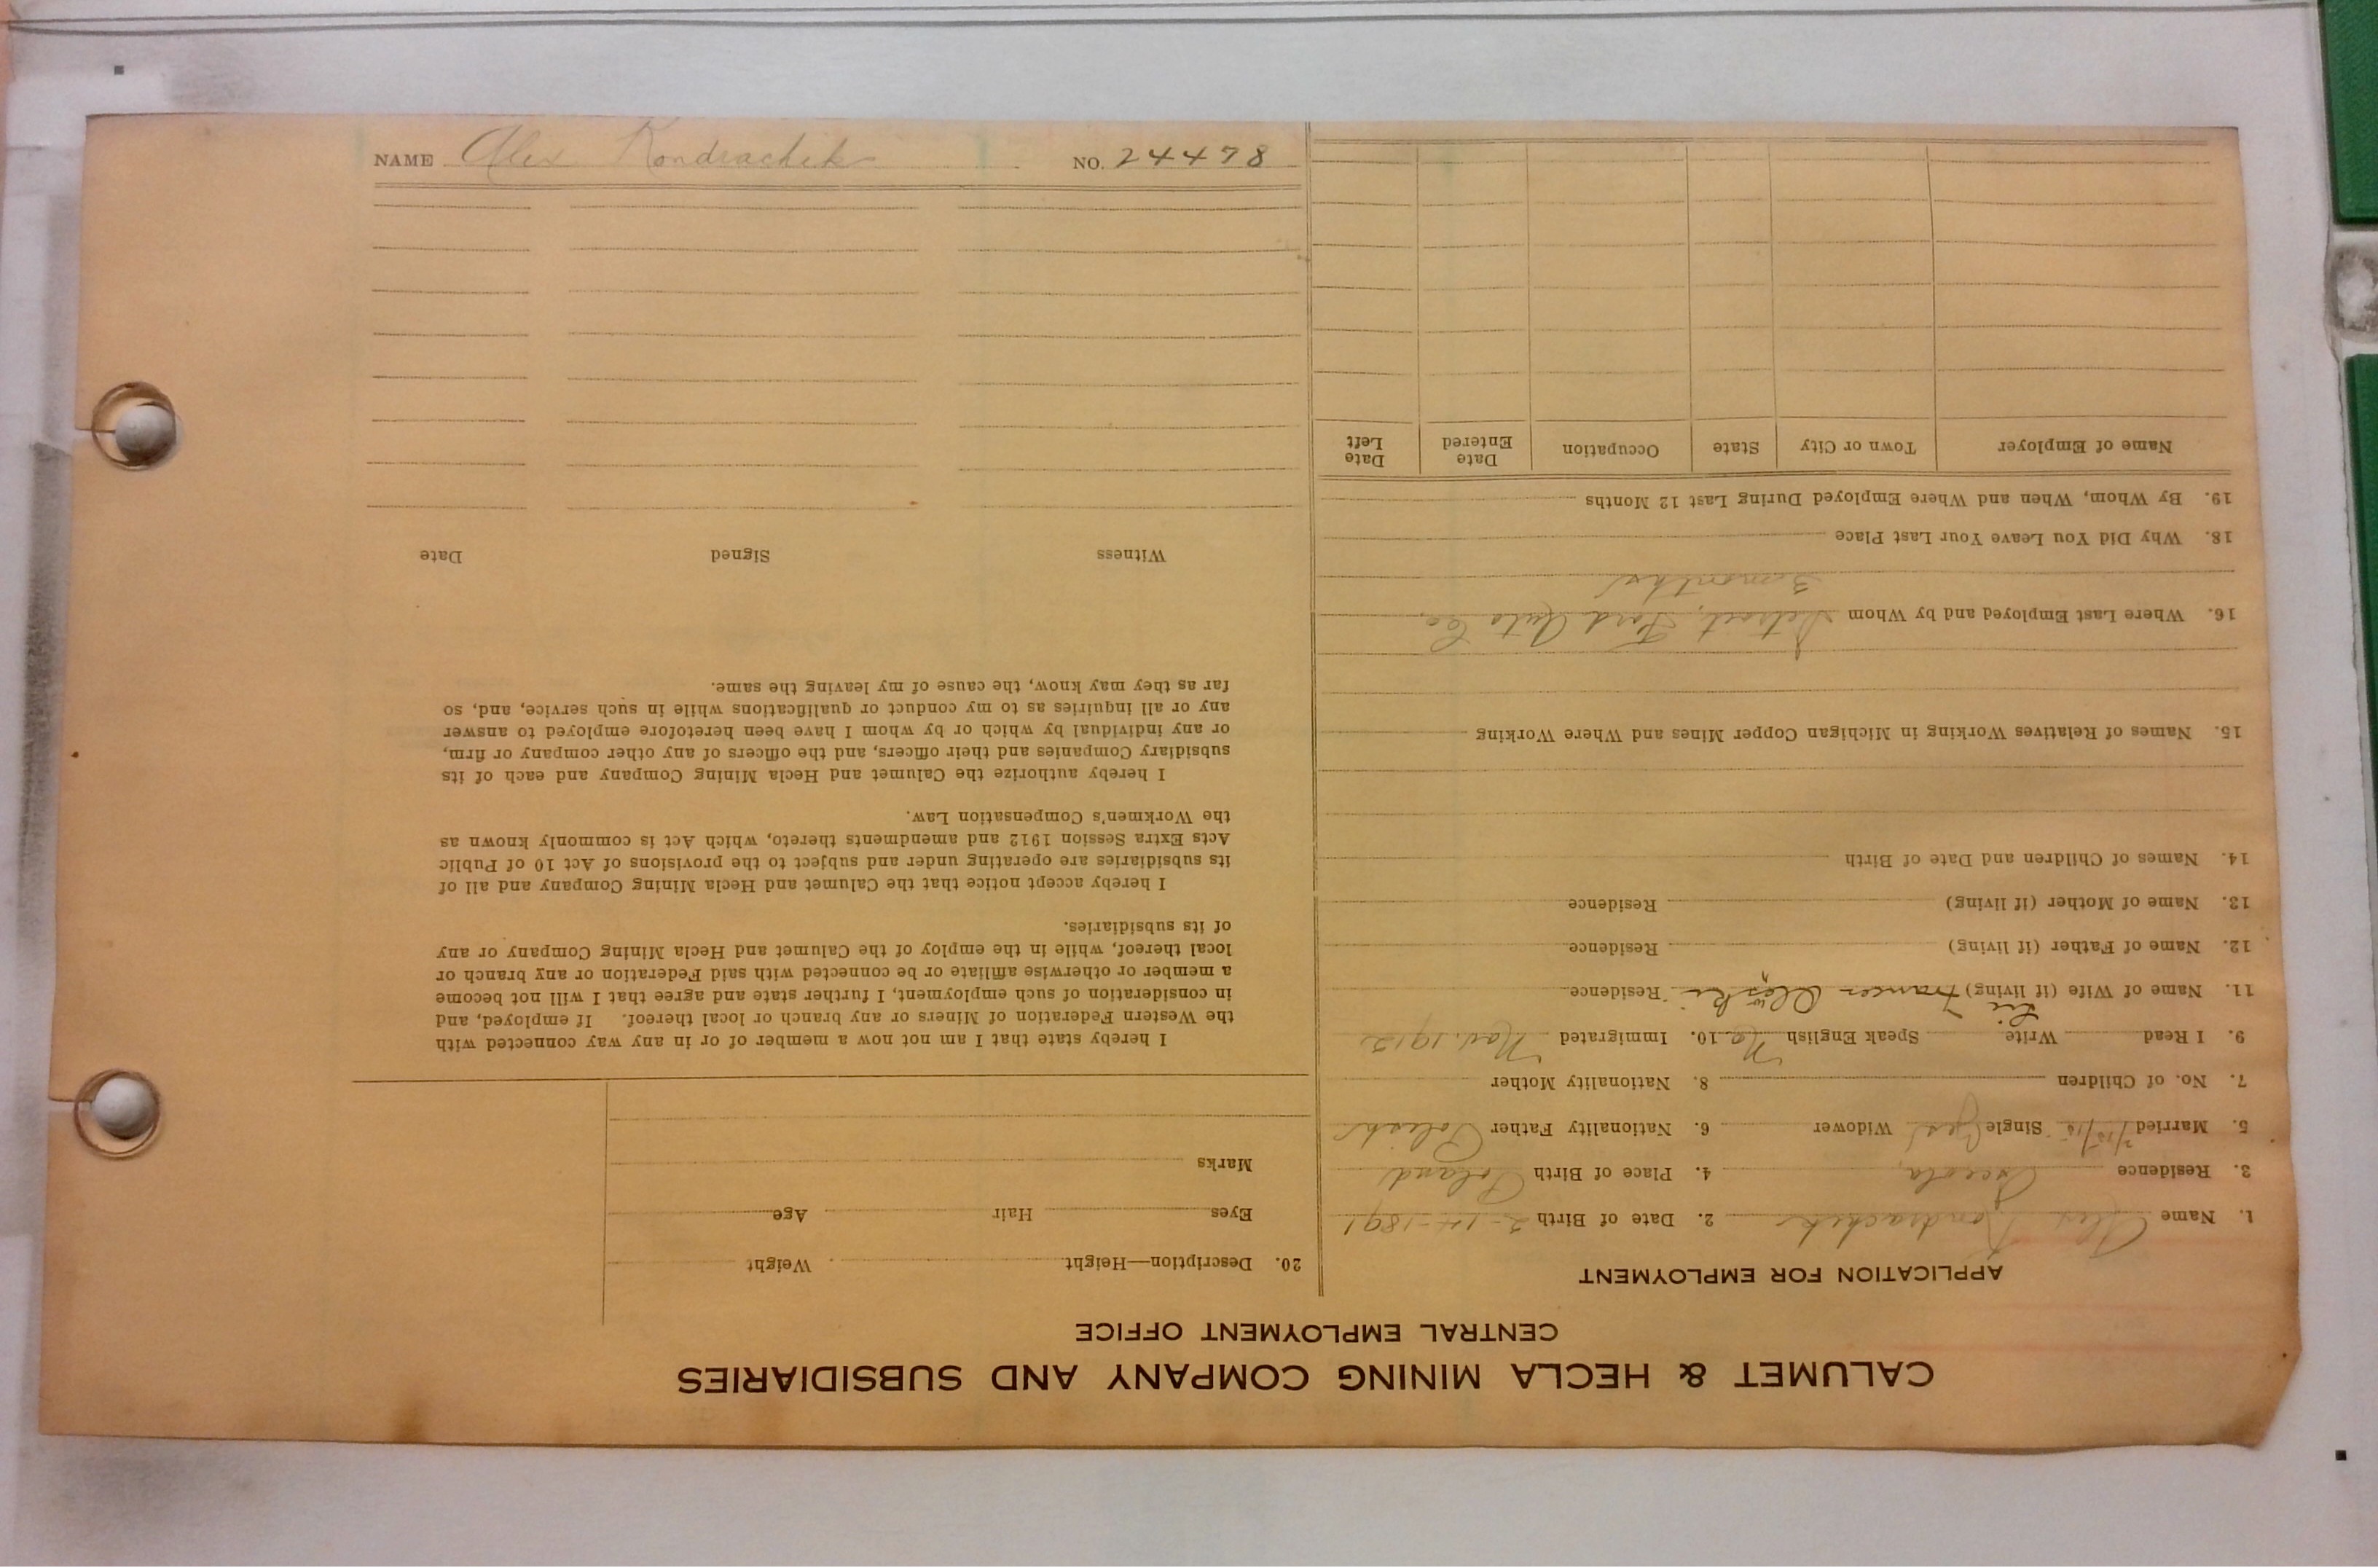 CALUMET & HECLA MINING COMPANY AND SUBSIDIARIES
CENTRAL EMPLOYMENT OFFICE
APPLICATION FOR EMPLOYMENT
1. Name Alex Kondrachek 2. Date of Birth 2-14-1891
3. Residence Osceola, 4. Place of Birth Poland
5. Married 7/15/15 Single Yes Widower 6. Nationality Father Polish
7. No. of Children 8. Nationality Mother
9. I Read Write Speak English No 10. Immigrated 1912
11. Name of Wife (if living) Frances Residence
12. Name of Father (if living) Residence
13. Name of Mother (if living) Residence
14. Names of Children and Date of Birth
15. Names of Relatives Working in Michigan Copper Mines and Where Working
16. Where Last Employed and by Whom Detroit, Ford Auto Co.
3 months
18. Why Did You Leave Your Last Place
19. By Whom, When and Where Employed During Last 12 Months
Name of Employer Town or City State Occupation Date Entered Date Left
20. Description—Height Weight
Eyes Hair Age
Marks
I hereby state that I am not now a member of or in any way connected with
the Western Federation of Miners or any branch or local thereof. If employed, and
in consideration of such employment, I further state and agree that I will not become
a member or otherwise affiliate or be connected with said Federation or any branch or
local thereof, while in the employ of the Calumet and Hecla Mining Company or any
of its subsidiaries.
I hereby accept notice that the Calumet and Hecla Mining Company and all of
its subsidiaries are operating under and subject to the provisions of Act 10 of Public
Acts Extra Session 1912 and amendments thereto, which Act is commonly known as
the Workmen's Compensation Law.
I hereby authorize the Calumet and Hecla Mining Company and each of its
subsidiary Companies and their officers, and the officers of any other company or firm,
or any individual by which or by whom I have been heretofore employed to answer
any or all inquiries as to my conduct or qualifications while in such service, and, so
far as they may know, the cause of my leaving the same.
Witness Signed Date
NAME Alex Kondrachek NO. 24478